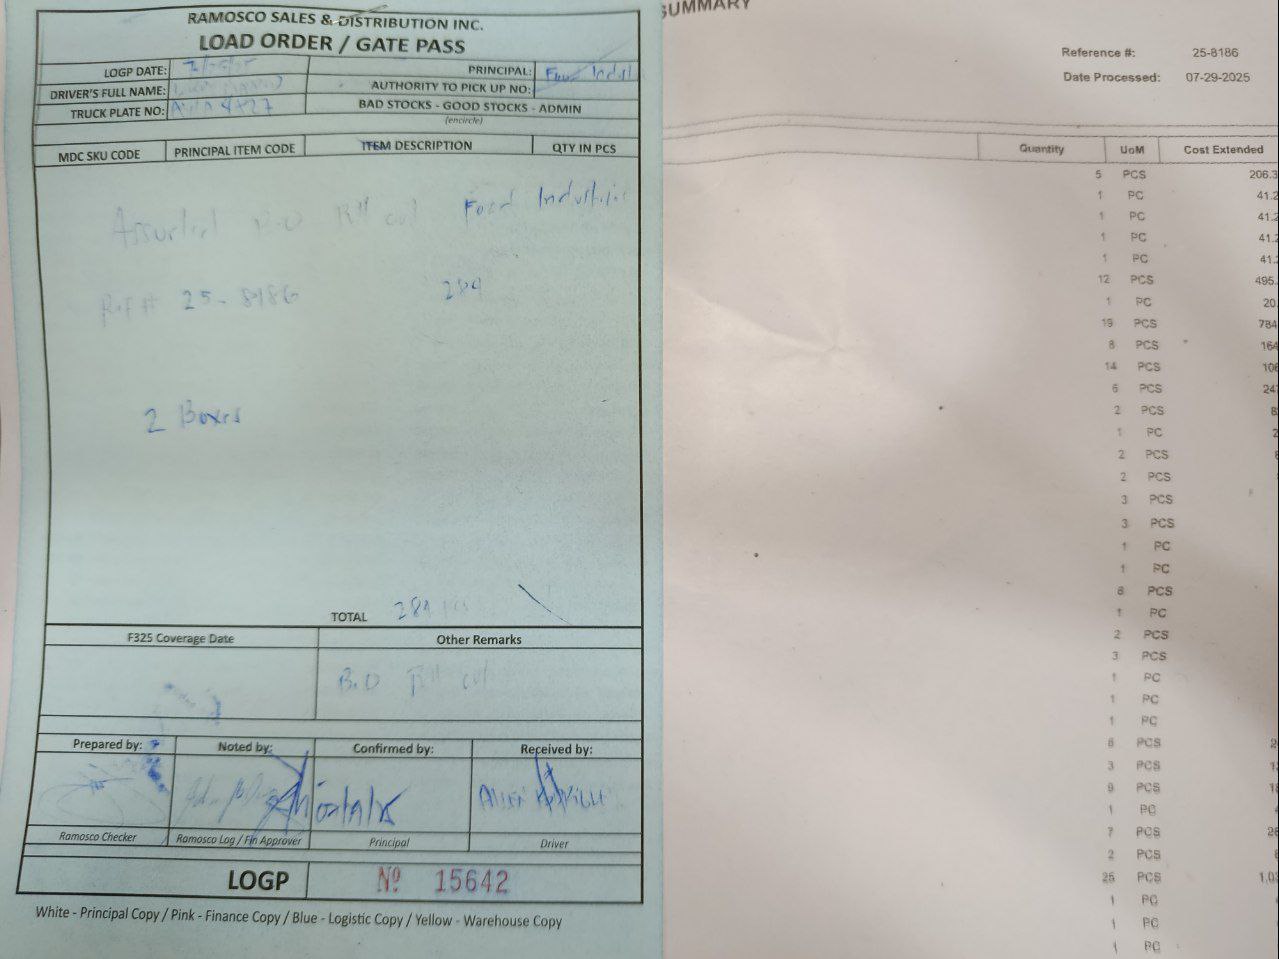 RAMOSCO SALES & DISTRIBUTION INC.
LOAD ORDER / GATE PASS
LOGP DATE:
PRINCIPAL: Food Indust
DRIVER'S FULL NAME:
AUTHORITY TO PICK UP NO:
TRUCK PLATE NO:
BAD STOCKS - GOOD STOCKS - ADMIN
(encircle)
MDC SKU CODE PRINCIPAL ITEM CODE ITEM DESCRIPTION QTY IN PCS
Assorted B.O Food Industries
Ref # 25-8186 284
2 Boxes
TOTAL 284
F325 Coverage Date Other Remarks
B.O
Prepared by: Noted by: Confirmed by: Received by:
Ramosco Checker Ramosco Log / Fin Approver Principal Driver
LOGP Nº 15642
White - Principal Copy / Pink - Finance Copy / Blue - Logistic Copy / Yellow - Warehouse Copy
SUMMARY
Reference #: 25-8186
Date Processed: 07-29-2025
Quantity UoM Cost Extended
5 PCS 206.3
1 PC 41.2
1 PC 41.2
1 PC 41.2
1 PC 41.
12 PCS 495.
1 PC 20.
19 PCS 784
8 PCS 164
14 PCS 106
6 PCS 24
2 PCS 8
1 PC 2
2 PCS
2 PCS
3 PCS
3 PCS
1 PC
1 PC
8 PCS
1 PC
2 PCS
3 PCS
1 PC
1 PC
1 PC
6 PCS 2
3 PCS 1
9 PCS 1
1 PC
7 PCS 28
2 PCS
25 PCS 1,03
1 PC
1 PC
1 PC